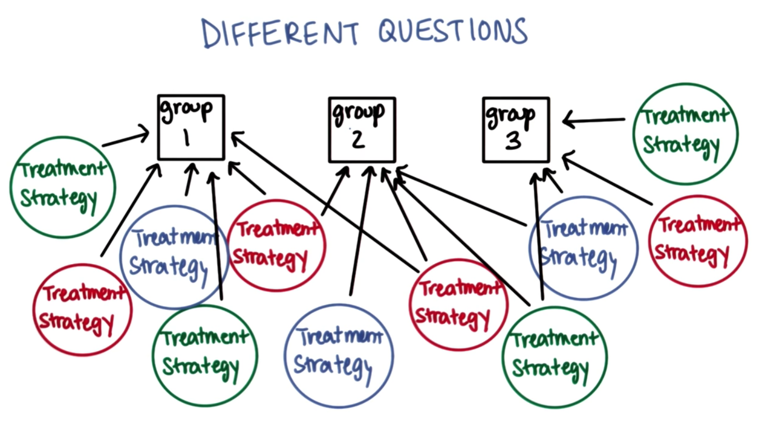 DIFFERENT QUESTIONS
group
1
group
2
group
3
Treatment
Strategy
Treatment
Strategy
Treatment
Strategy
Treatment
Strategy
Treatment
Strategy
Treatment
Strategy
Treatment
Strategy
Treatment
Strategy
Treatment
Strategy
Treatment
Strategy
Treatment
Strategy